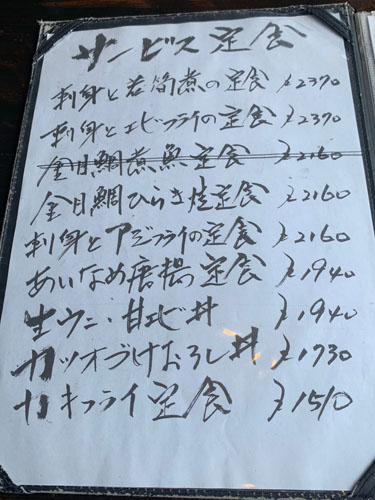 サービス定食
刺身と若筍煮の定食 ¥2370
刺身とエビフライの定食 ¥2370
金目鯛煮魚定食 ¥2160
金目鯛ひらき焼定食 ¥2160
刺身とアジフライの定食 ¥2160
あいなめ唐揚定食 ¥1940
生ウニ・甘エビ丼 ¥1940
カツオづけおろし丼 ¥1730
カキフライ定食 ¥1510